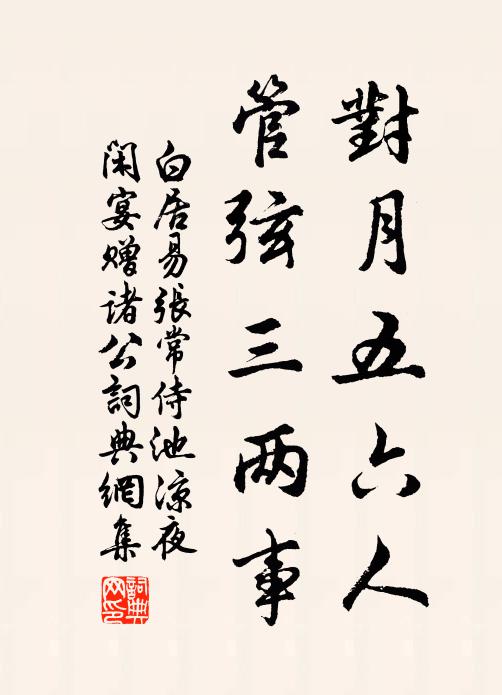 對月五六人
管弦三两事
白居易張常侍池涼夜
閑宴贈諸公詞典網集
詞典網印